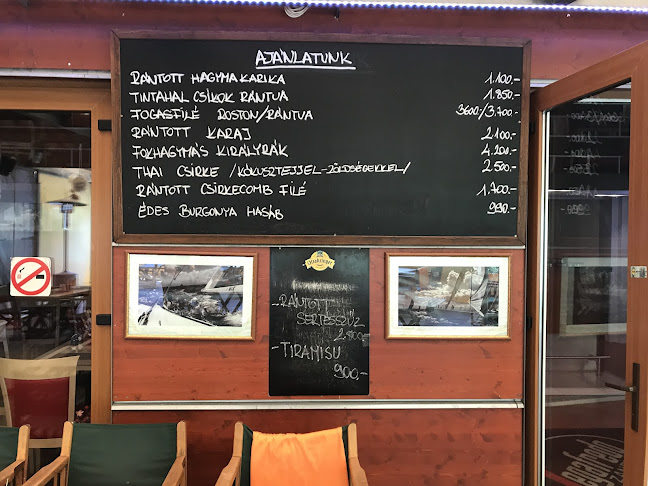 AJÁNLATUNK
RÁNTOTT HAGYMAKARIKA 1.100.-
TINTAHAL CSÍKOK RÁNTVA 1.850.-
FOGASFILÉ ROSTON/RÁNTVA 3600.-/3.700.-
RÁNTOTT KARAJ 2.100.-
FOKHAGYMÁS KIRÁLYRÁK 4.200.-
THAI CSIRKE /KÓKUSZTEJJEL-ZÖLDSÉGEKKEL/ 2.500.-
RÁNTOTT CSIRKECOMB FILÉ
ÉDES BURGONYA HASÁB 990.-
- RÁNTOTT
SERTÉSSZŰZ
- TIRAMISU
900.-